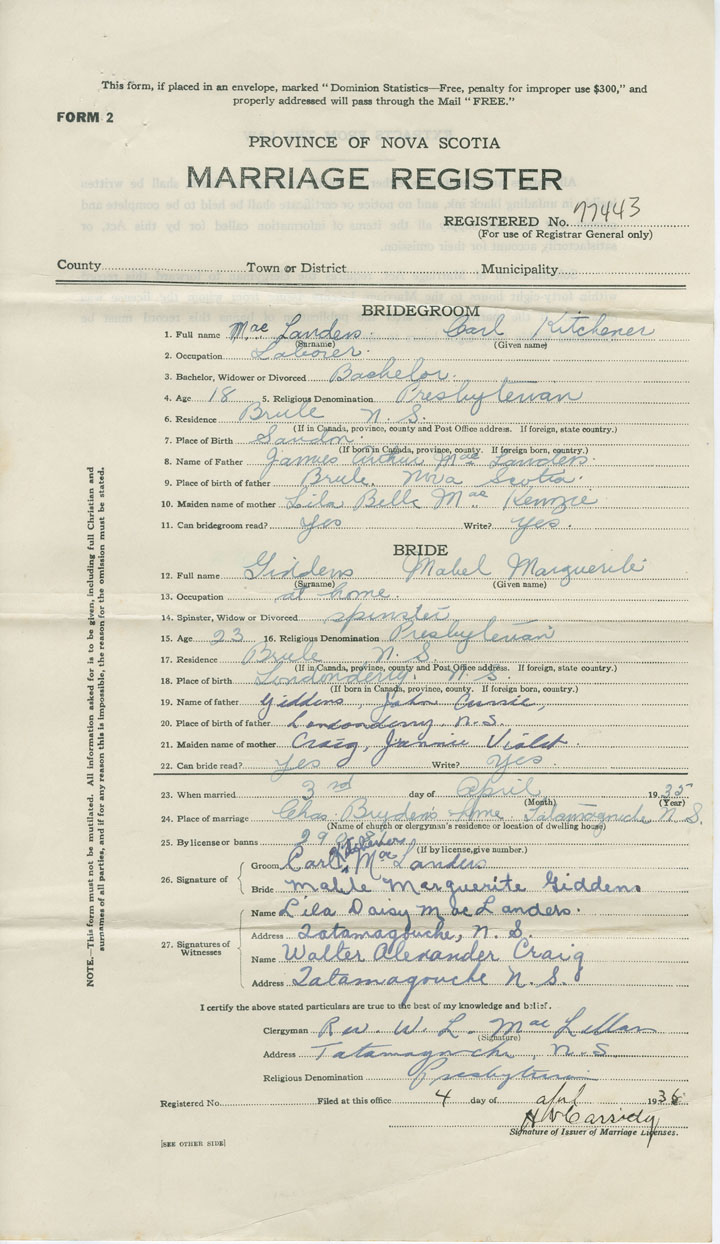 This form, if placed in an envelope, marked "Dominion Statistics—Free, penalty for improper use $300," and
properly addressed will pass through the Mail "FREE."
FORM 2
PROVINCE OF NOVA SCOTIA
MARRIAGE REGISTER
REGISTERED No. 77443
(For use of Registrar General only)
County Town or District Municipality
BRIDEGROOM
1. Full name Mac Landers Carl Kitchener
(Surname) (Given name)
2. Occupation Laborer
3. Bachelor, Widower or Divorced Bachelor
4. Age 18 5. Religious Denomination Presbyterian
6. Residence Brule N. S.
(If in Canada, province, county and Post Office address. If foreign, state country.)
7. Place of Birth
(If born in Canada, province, county. If foreign born, country.)
8. Name of Father James Arthur Mac Landers
9. Place of birth of father Brule, Nova Scotia
10. Maiden name of mother Lila Belle Mac Kenzie
11. Can bridegroom read? Yes Write? Yes.
BRIDE
12. Full name Giddens Mabel Marguerite
(Surname) (Given name)
13. Occupation at home.
14. Spinster, Widow or Divorced spinster
15. Age 23 16. Religious Denomination Presbyterian
17. Residence Brule N. S.
(If in Canada, province, county and Post Office address. If foreign, state country.)
18. Place of birth Londonderry. N. S.
(If born in Canada, province, county. If foreign born, country.)
19. Name of father Giddens, John Currie,
20. Place of birth of father Londonderry, N. S.
21. Maiden name of mother Craig, Jennie Violet.
22. Can bride read? Yes Write? Yes.
23. When married 3rd day of April 1935
(Month) (Year)
24. Place of marriage Chas Bryden's home Tatamagouche N S.
(Name of church or clergyman's residence or location of dwelling house)
25. By license or banns
(If by license, give number.)
26. Signature of
Groom Carl Kitchener Mac Landers
Bride Mable Marguerite Giddens
27. Signatures of Witnesses
Name Lila Daisy Mac Landers.
Address Tatamagouche, N. S.
Name Walter Alexander Craig
Address Tatamagouche N. S.
I certify the above stated particulars are true to the best of my knowledge and belief.
Clergyman Rev. W. L. Mac Lellan
(Signature)
Address Tatamagouche, N. S.
Religious Denomination Presbyterian
Registered No. Filed at this office 4 day of April 1935
Signature of Issuer of Marriage Licenses.
[SEE OTHER SIDE]
NOTE.—This form must not be mutilated. All information asked for is to be given, including full Christian and
surnames of all parties, and if for any reason this is impossible, the reason for the omission must be stated.